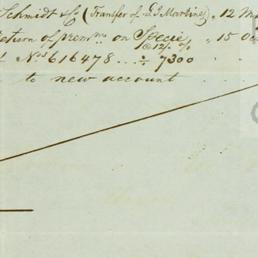 Schmidt & Co (Transfer of D. J. Martins) " 12 Ma
Return of prem.ms on Specie " 15 Oc
@ 12/. %
Nos 616478 ... ÷ 7300
to new account